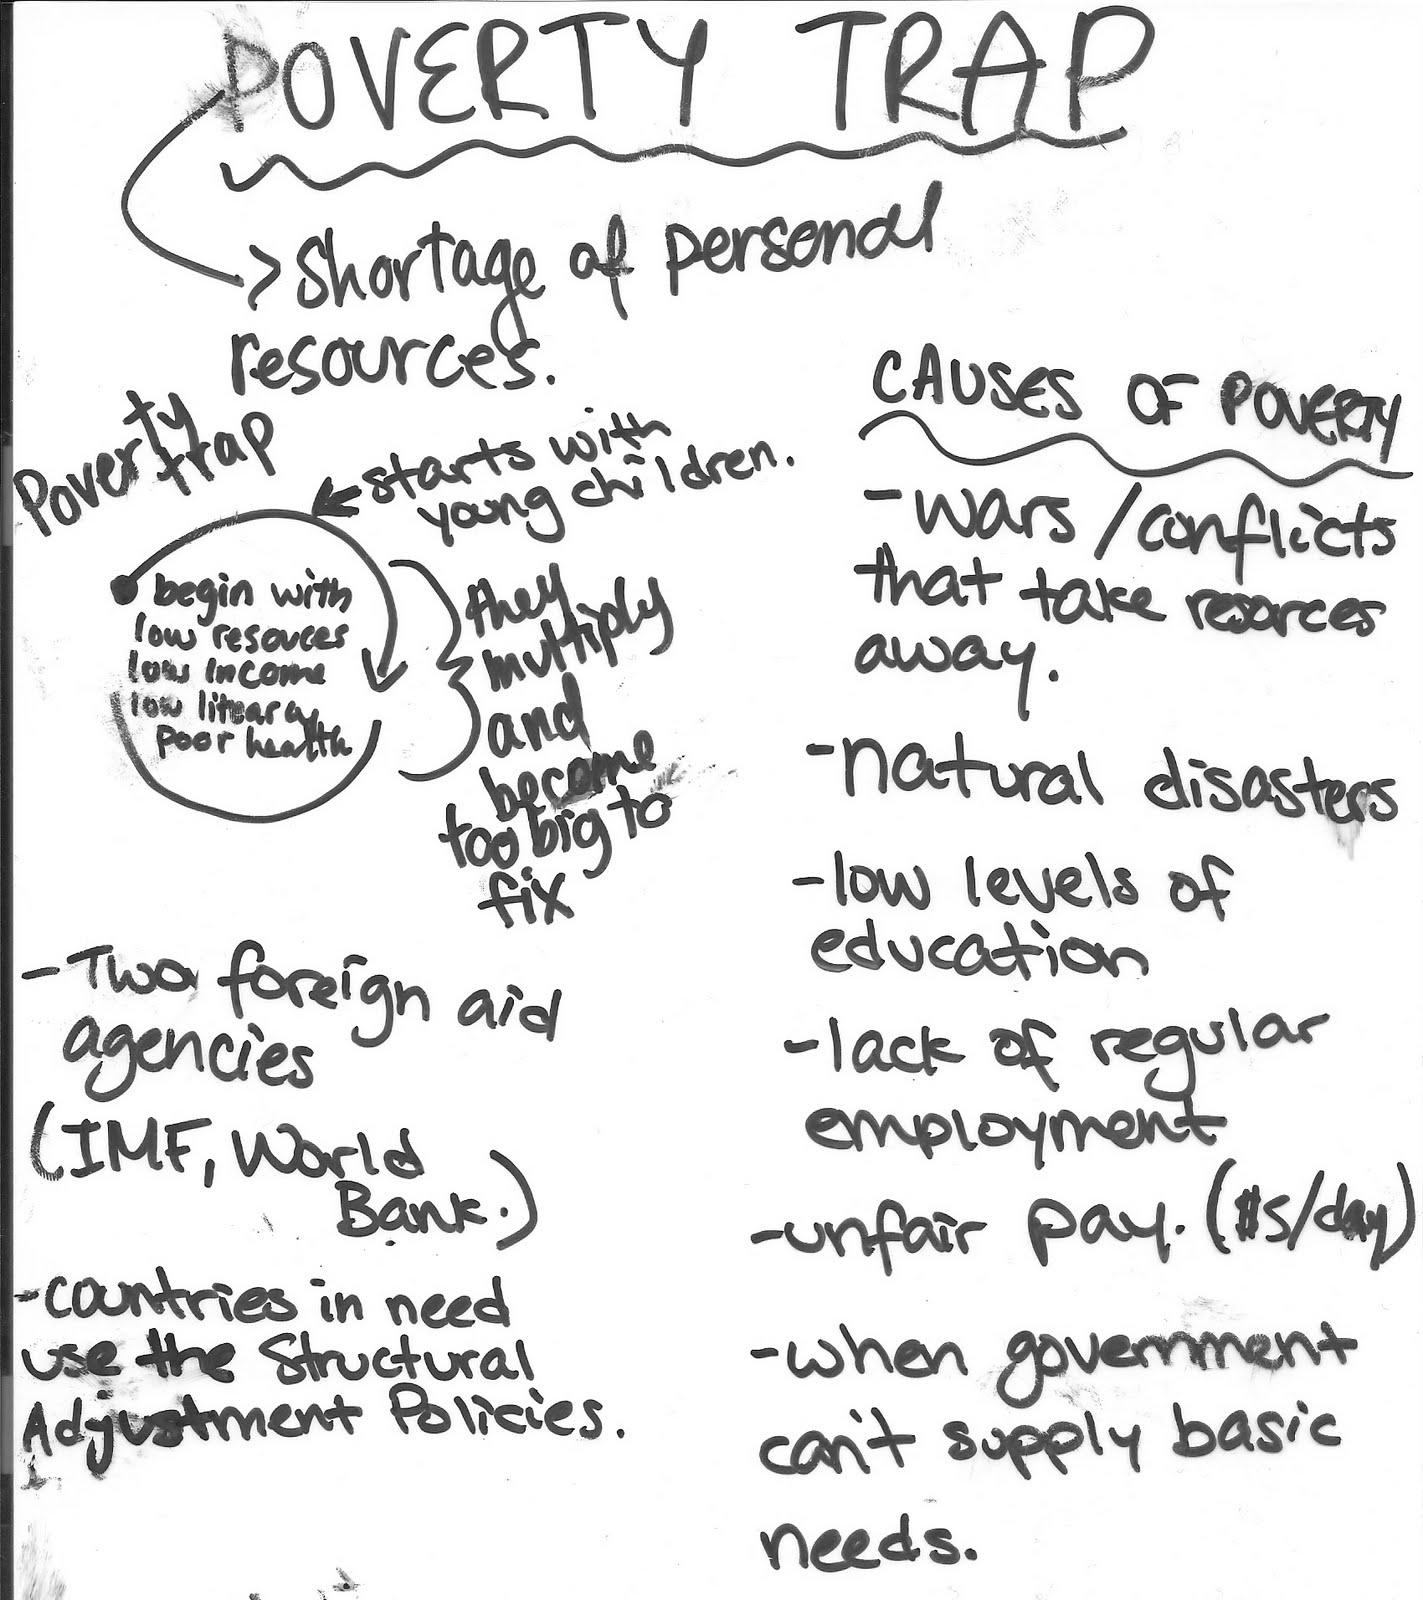 POVERTY TRAP
> Shortage of personal
resources.
Poverty
trap
starts with
young children.
begin with
low resouces
low income
low literacy
poor health
they
multiply
and
become
too big to
fix
- Two foreign aid
agencies
(IMF, World
Bank.)
- countries in need
use the Structural
Adjustment Policies.
CAUSES OF POVERTY
- wars / conflicts
that take resorces
away.
- natural disasters
- low levels of
education
- lack of regular
employment
- unfair pay. ($5/day)
- when government
can't supply basic
needs.